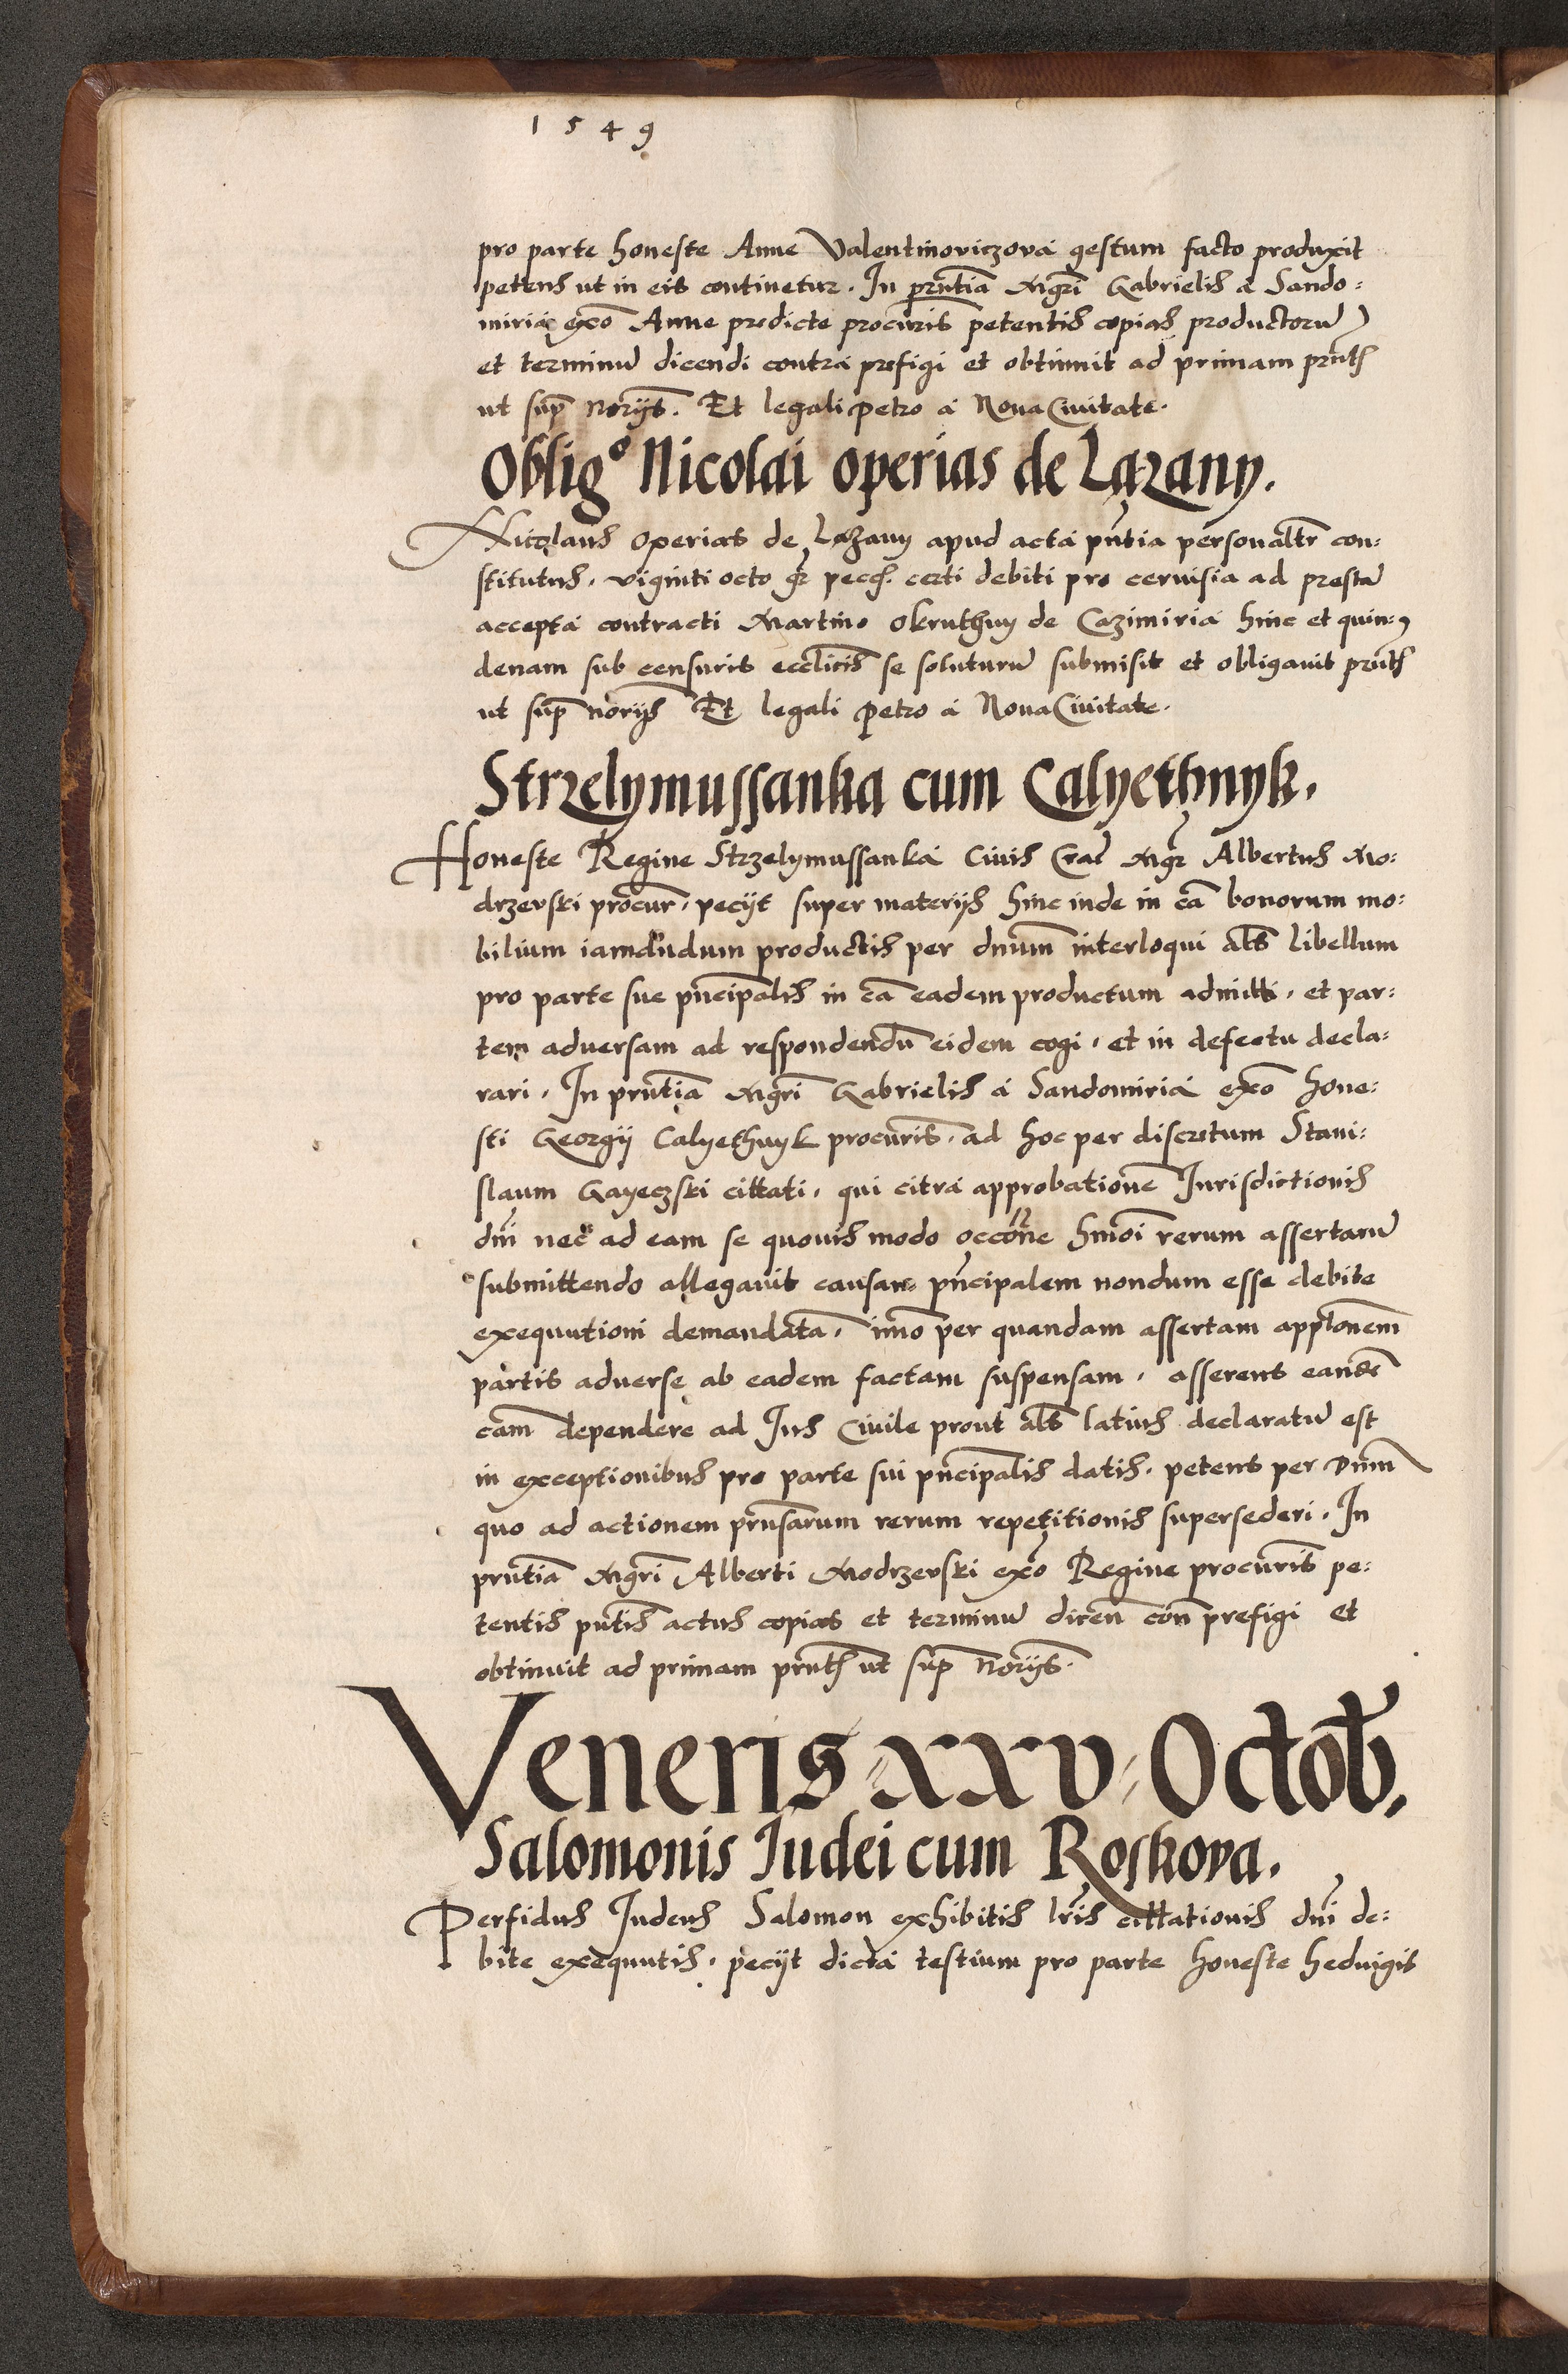 1549
pro parte honeste Anne Valentinoviczova gestum facto produxit
petens ut in eis continetur. In prntia Mgri Gabrielis a Sando:
miria exo Anne predicte procuris petentis copias productoru
et terminu dicendi contra prefigi et obtinuit ad primam prnth
ut sup noriis. Et legali petro a Nova Civitate.
Oblig° Nicolai operias de Lazany.
Nicolaus Operias de Lazany apud acta pntia personaltr con:
stitutus. viginti octo gr pecc. certi debiti pro cervisia ad presta
accepta contracti Martino Okruthny de Cazimiria hinc et quin:
denam sub censuris ecclicis se soluturu submisit et obligavit prnth
ut sup noriis Et legali petro a Nova Civitate.
Strzelymussanka cum Calyethnyk.
Honeste Regine Strzelymussanka Civis Crac Mgr Albertus Mo:
drzevski procur. peciit super materiis hinc inde in ca bonorum mo:
bilium iamdudum productis per dnum interloqui als libellum
pro parte sue pncipalis in ca eadem productum admitti. et par:
tem adversam ad respondendu eidem cogi. et in defectu decla:
rari. In prntia Mgri Gabrielis a Sandomiria exo hone:
sti Georgii Calyethnyk procuris. ad hoc per discretum Stani:
slaum Gayeczski cittati. qui citra approbatione Jurisdictionis
dni nec ad eam se quovis modo occone hmoi rerum assertaru
submittendo allegavit causam pncipalem nondum esse debite
exequutioni demandata. imo per quandam assertam appltonem
partis adverse ab eadem factam suspensam. asserens eande
cam dependere ad Jus Civile prout als latius declaratu est
in exceptionibus pro parte sui pncipalis datis. petens per Dnm
quo ad actionem prnsarum rerum repetitionis supersederi. In
prntia Mgri Alberti Modrzevski exo Regine procuris pe:
tentis pntis actus copias et terminu dicen con prefigi et
obtinuit ad primam prnth ut sup noriis.
Veneris xxv Octob,
Salomonis Iudei cum Roskova.
Perfidus Judeus Salomon exhibitis lris cittationis dni de:
bite exequutis. peciit dicta testium pro parte honeste hedvigis